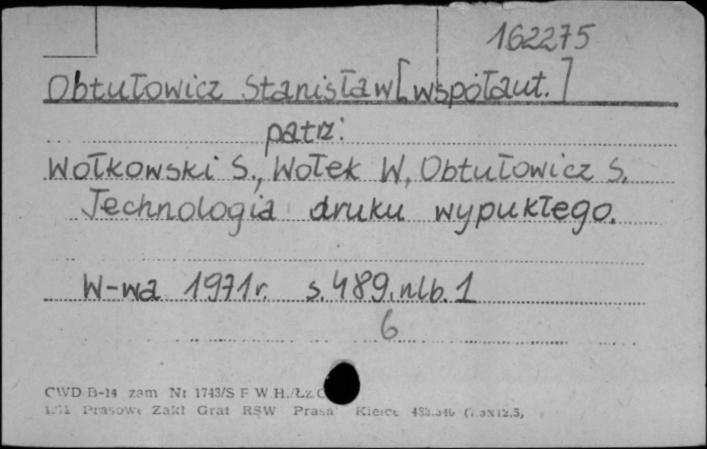 162275
Obtułowicz Stanisław [współaut.]
patrz:
Wołkowski S., Wołek W, Obtułowicz S.
Technologia druku wypukłego.
W-wa 1971r. s. 489, nlb. 1
6
CWD B-14 zam Nr 1743/S F W.H./Łz.
Prasowe Zakł Graf RSW Prasa Kielce